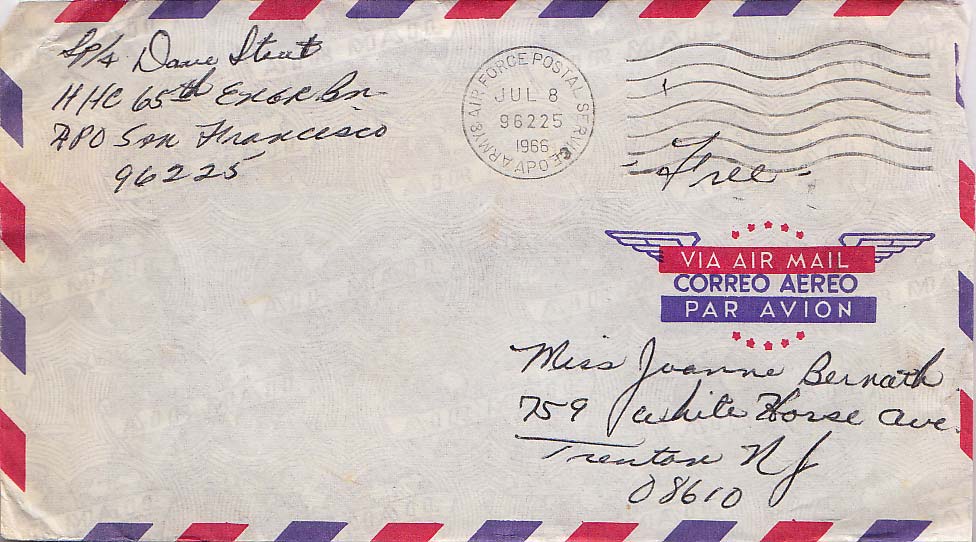 Sp/4 Dave Stout
HHC 65th Engr. Bn
APO San Francesco
96225
ARMY & AIR FORCE POSTAL SERVICE
JUL 8
96225
1966
APO
Free
VIA AIR MAIL
CORREO AEREO
PAR AVION
Miss Joanne Bernath
759 White Horse Ave.
Trenton NJ
08610